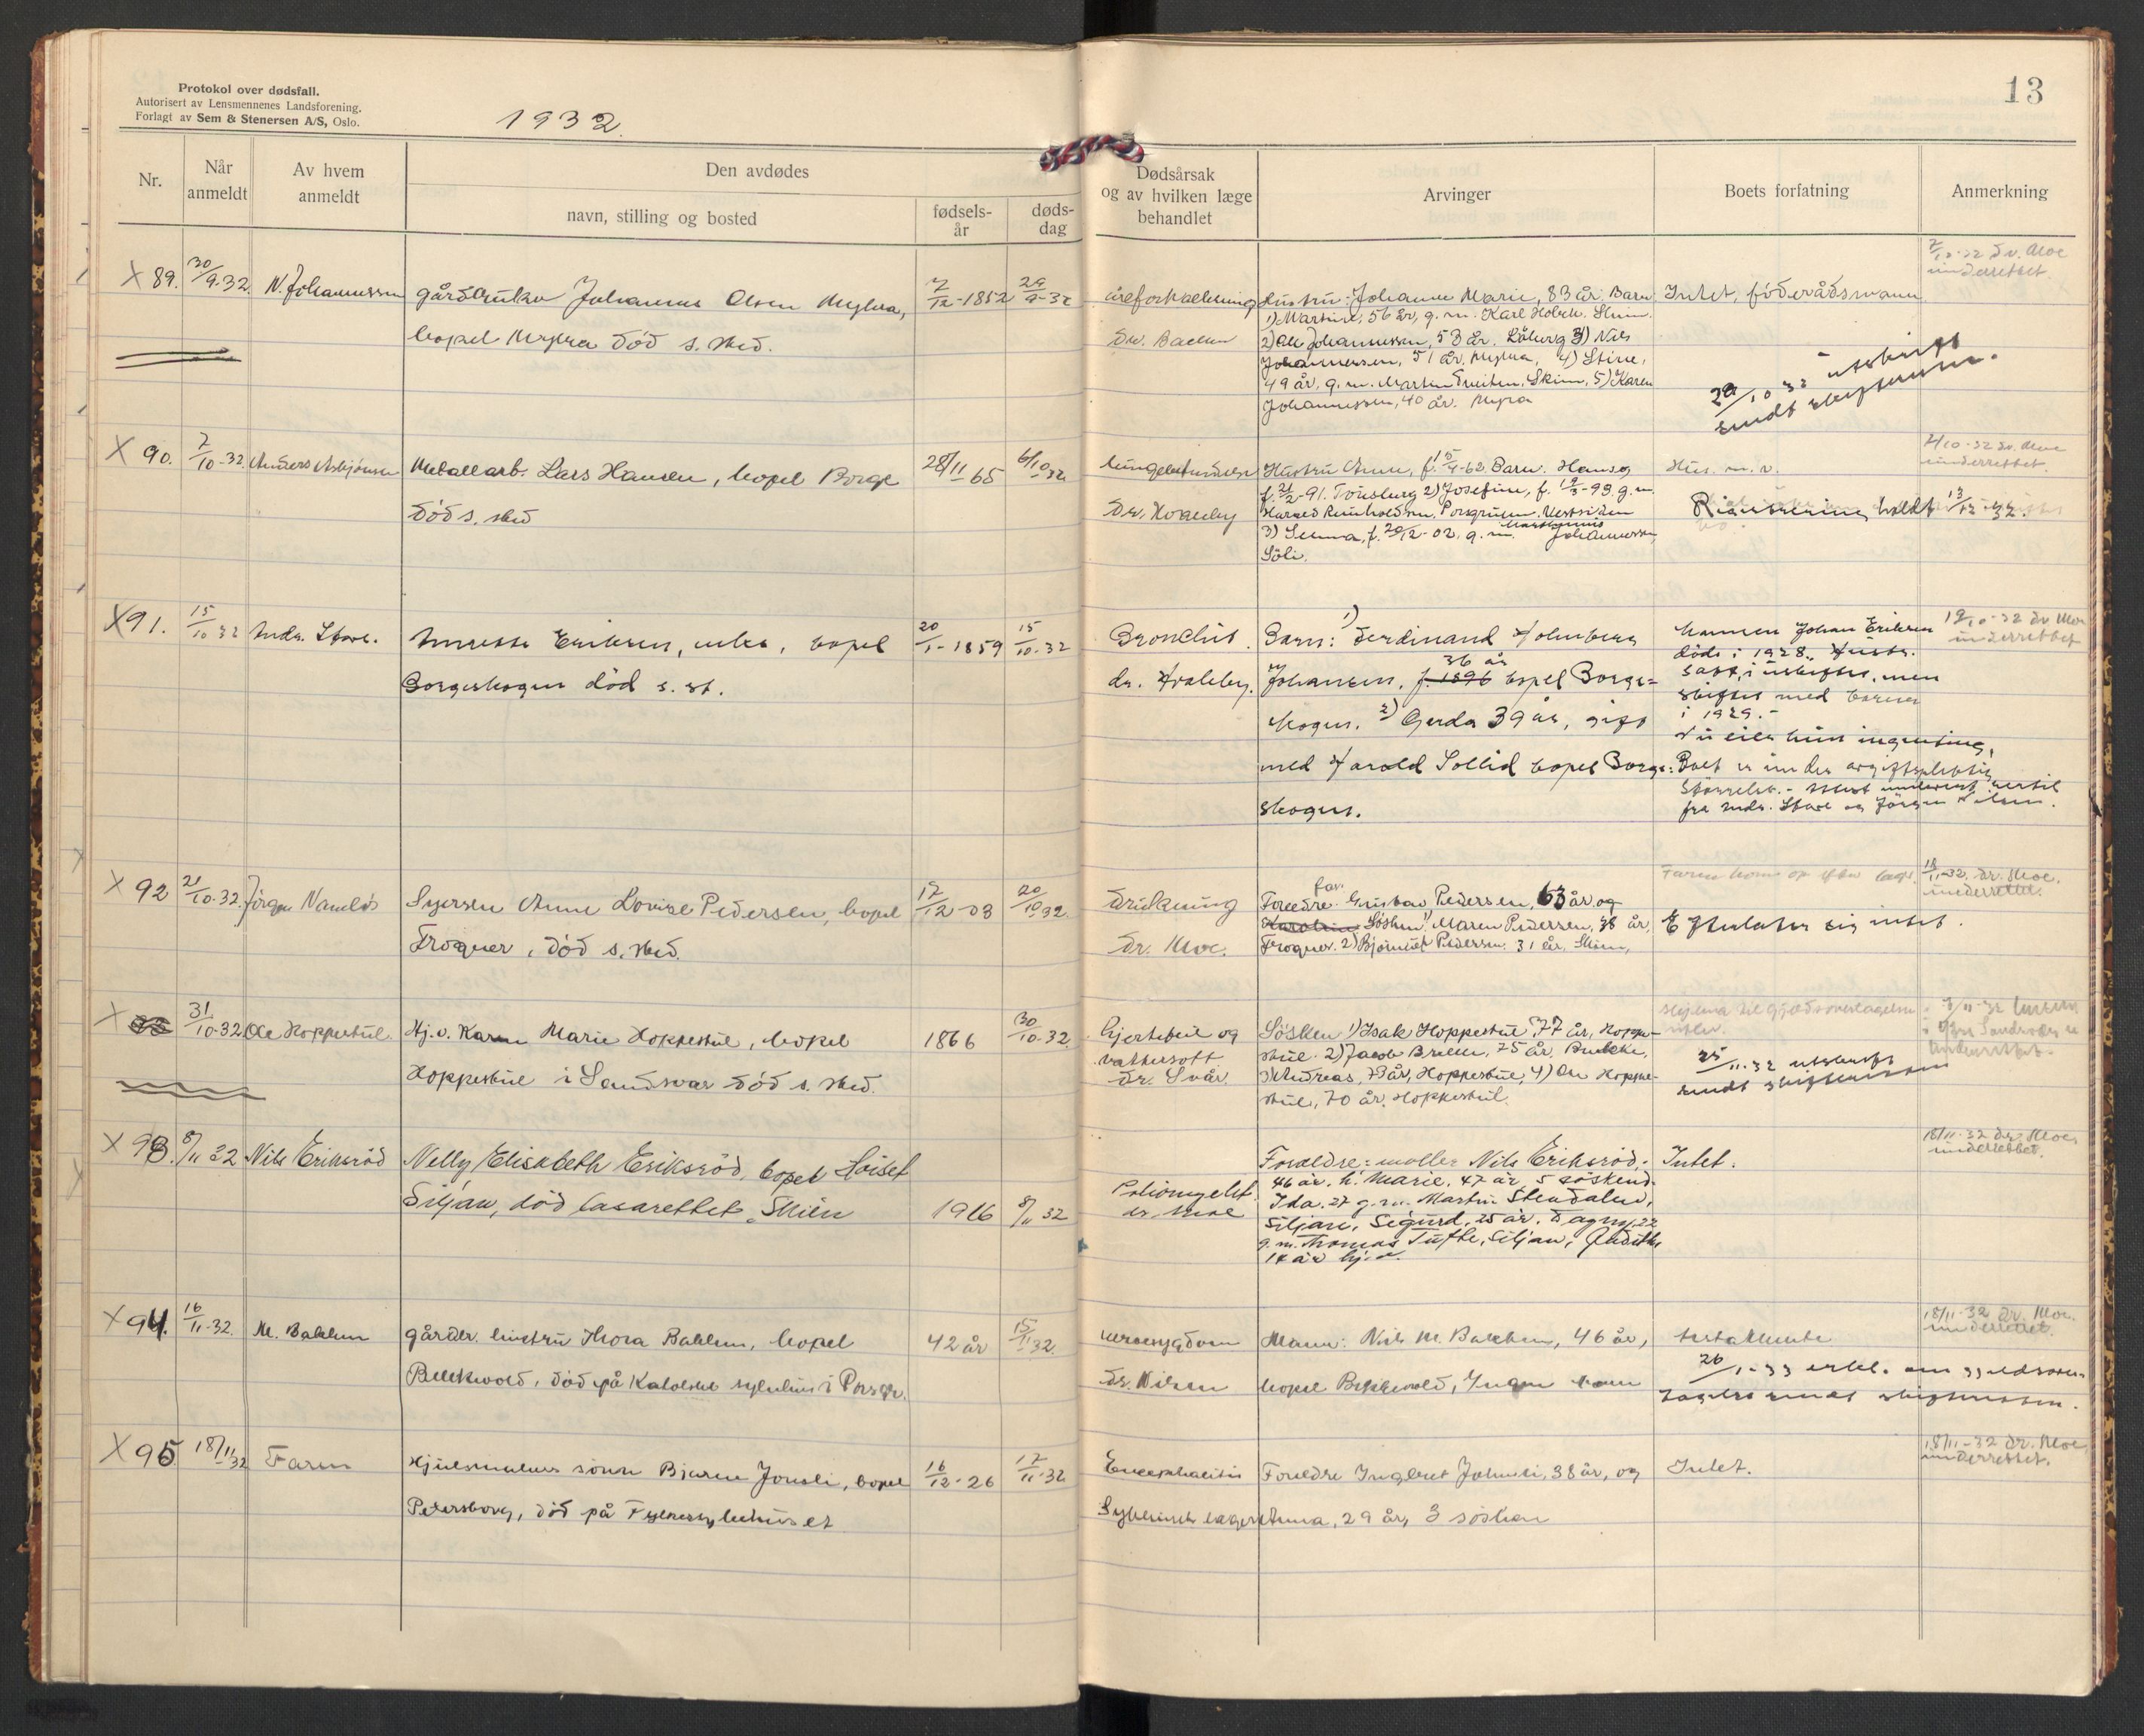 Protokol over dødsfall.
Autorisert av Lensmennenes Landsforening.
Forlagt av Sem & Stenersen A/S, Oslo.
1932.
13
Nr.
Når anmeldt
Av hvem anmeldt
Den avdødes
navn, stilling og bosted
fødsels-år
døds-dag
Dødsårsak og av hvilken læge behandlet
Arvinger
Boets forfatning
Anmerkning
X 89. 30/9-32. N. Johannessen
gårdbruker Johannes Olsen Myhra,
bopel Myhra död s. sted.
7/12-1852 29/9-32
åreforkalkning
Dr. Backer
Hustru: Johanne Marie, 83 år. Barn
1) Martine, 56 år, g.m. Karl Holtek. Skien.
2) Ole Johannessen, 53 år. Löberg 3) Nils
Johannessen, 51 år. Myhra, 4) Stine,
49 år, g.m. Martin Sneiten, Skien, 5) Karen
Johannessen, 40 år. Myra
Intet, föderådsmann
29/10 32 utskrift
sendt skifteretten.
7/10-32 dr. Moe
underrettet.
X 90. 7/10-32. Anders Asbjönsen
Metallarb. Lars Hansen, bopel Borge
död s. sted
28/11 65 6/10 32
lungebetendelse
Dr. Hoaeby
Hustru Anne, f. 15/4-62. Barn. Hans,
f. 21/2-91. Tönsberg 2) Josefine, f. 19/3-93 g.m.
Harald Reinholdsen. Porsgrunn. Vestsiden
3) Selma, f. 20/12-02, g.m. Johannessen,
Söli.
Hus. m.v.
Registrering holdt 13/12-32.
7/10-32 dr. Moe
underrettet.
X 91. 15/10 32 Andr. Stave.
Annette Eriksen, enke, bopel
Borgeskogen död s. st.
20/1-1859 15/10-32
Bronchit.
dr. Hvaleby.
Barn: 1) Ferdinand Holmberg
Johansen, f. 1896 36 år bopel Borge=
skogen. 2) Gerda 39 år, gift
med Harald Sollid bopel Borge=
skogen.
Mannen Johan Eriksen
döde i 1928. Hustr.
satt i uskifte, men
skiftet med barna
i 1929.-
Nu eier hun ingenting,
Boet er under avgiftspliktig
störrelse.-
fra Andr. Stave og Jörgen Nilsen.
19/10-32 dr Moe
underrettet
X 92 21/10-32. Jörgen Namlös
Syersken Anne Lovise Pedersen, bopel
Frogner, död s. sted.
17/12-03 20/10 32.
Drukning
Dr. Moe.
Foreldre: far Gustav Pedersen, 63 år og
Karoline Sösken: 1) Maren Pedersen, 38 år,
Frogner. 2) Bjarne Pedersen. 31 år, Skien,
Efterlater sig intet.
18/11-32. dr. Moe.
underrettet.
X 93 31/10-32 Ole Hoppestul.
Hj.v. Karen Marie Hoppestul, bopel
Hoppestul i Sandsvær död s. sted.
1866 30/10-32.
hjertefeil og
vattersott
Dr. Svår
Sösken 1) Isak Hoppestul 77 år, Hoppe-
stul. 2) Jacob Brekke, 75 år, Brekke,
3) Andreas, 73 år, Hoppestul, 4) Ole Hoppe-
stul, 70 år. Hoppestul.
25/11-32 utskrift
sendt skifteretten
X 93. 8/11 32 Nils Eriksröd
Nelly Elisabeth Eriksröd, bopel Hoiset
Siljan, död lasarettet, Skien
1916 8/11 32
Poliomyelit.
dr. Moe
Foreldre: möller Nils Eriksröd,
46 år, h. Marie, 47 år, 5 söskend.
Ida, 27 g.m. Martin Stendalen,
Siljan, Sigurd, 25 år. Dagny, 22
g.m. Thomas Tufte, Siljan, Judith,
14 år hj.v.
Intet.
18/11-32 dr. Moe,
underrettet.
X 94. 16/11-32. M. Bakken
gårdbr. hustru Thora Bakken, bopel
Bekkevold, död på Katolske sykehus i Porsgr.
42 år 15/11 32.
nervesygdom
dr. Nilsen
Mann: Nils M. Bakken, 46 år,
bopel Bekkevold, Ingen barn
26/1-33 erkl. om gjeldsover-
tagelse sendt skifteretten.
18/11-32 dr. Moe.
underrettet.
X 95 18/11 32 Faren
Hjulmakers sönn Bjarne Jonsli, bopel
Petersborg, död på Fylkessykehuset
16/12-26 17/11-32
Encephalitis
Sykehuslægen
Foreldre Inglbret Johnsli, 38 år, og
Anna, 29 år, 3 sösken
Intet.
18/11-32 dr. Moe
underrettet.